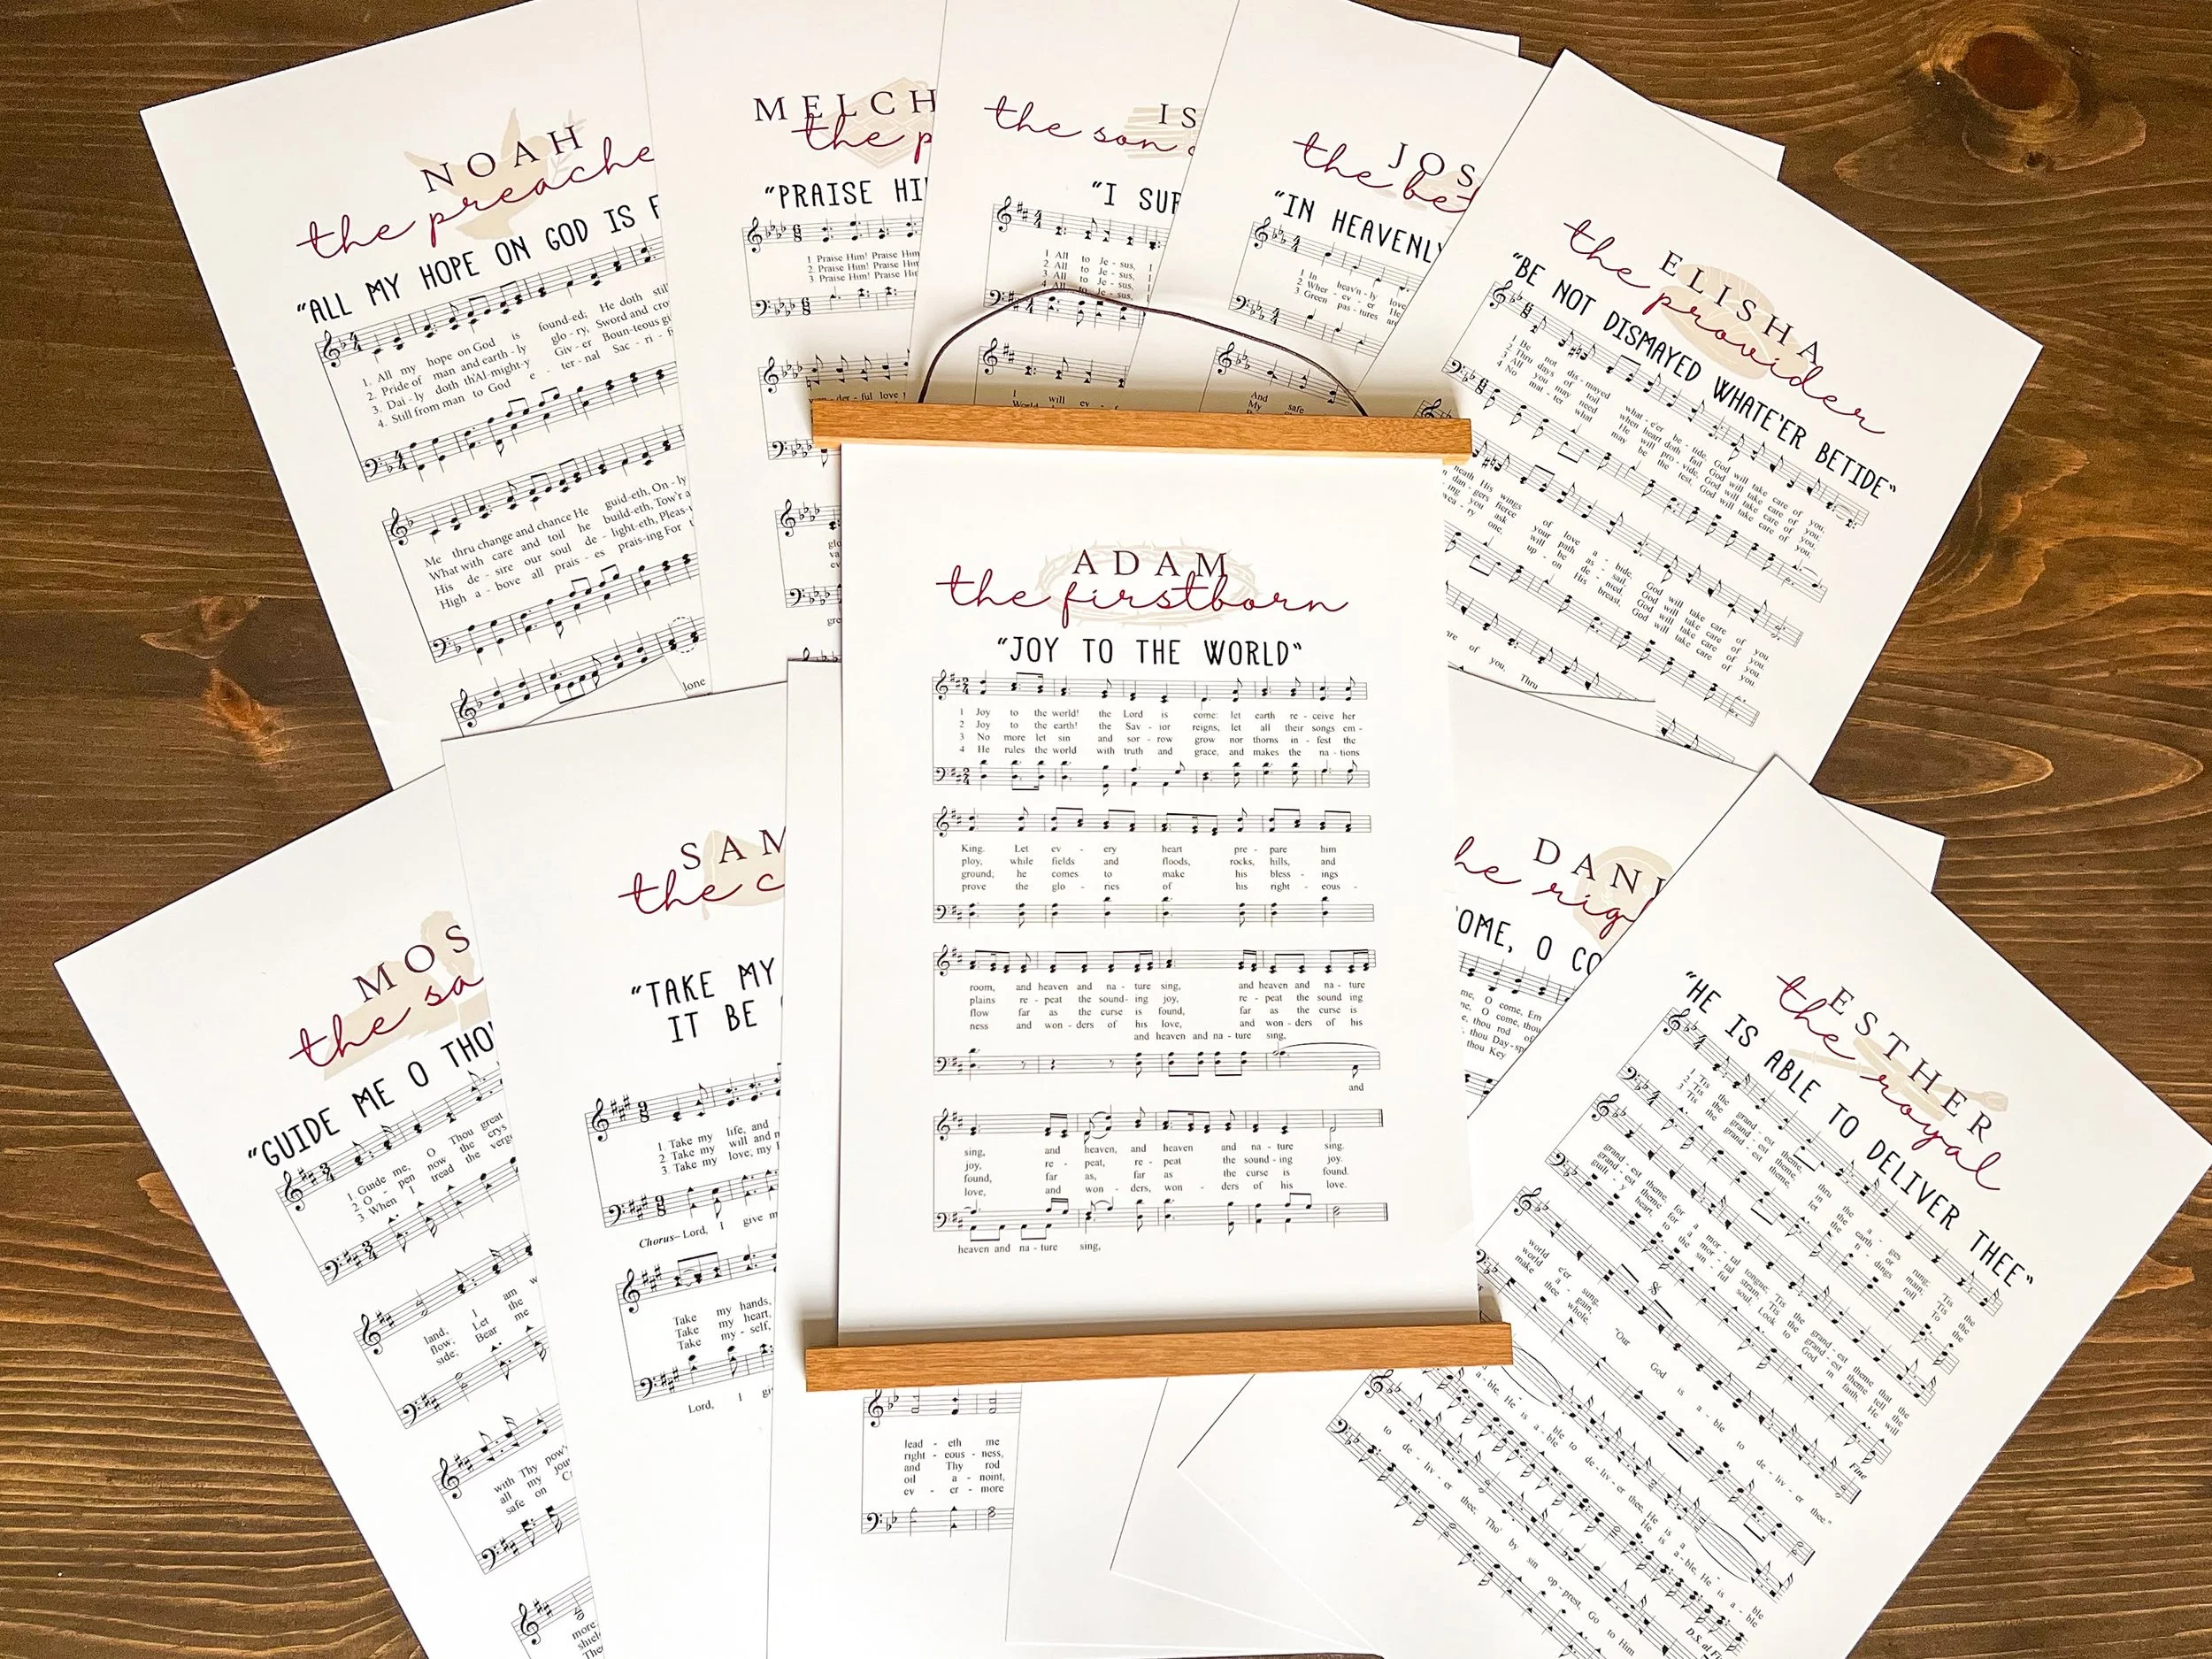 NOAH
the preache
"ALL MY HOPE ON GOD IS F
1. All my hope on God is found-ed; He doth still
2. Pride of man and earth-ly glo-ry, Sword and cro
3. Dai-ly doth th'Al-might-y Giv-er Boun-teous g
4. Still from man to God e-ter-nal Sac-ri-f
Me thru change and chance He guid-eth, On-ly
What with care and toil he build-eth, Tow'r a
His de-sire our soul de-light-eth, Pleas-
High a-bove all prais-es prais-ing For t
lone
MELCH
the p
"PRAISE HI
1 Praise Him! Praise Him
2. Praise Him! Praise Him
3 Praise Him! Praise Him
der-ful love
IS
the son
"I SUR
1 All to Je-sus, I
2 All to Je-sus, I
3 All to Je-sus, I
4 All to Je-sus, I
I will ev
JOS
the be
"IN HEAVENLY
1 In heav'n-ly love
2 Wher-ev-er He
3 Green pas-tures are
And safe
My
ELISHA
the provider
"BE NOT DISMAYED WHATE'ER BETIDE"
1 Be not dis-mayed what-e'er be-tide, God will take care of you,
2 Thru days of toil when heart doth fail, God will take care of you,
3 All you may need He will pro-vide, God will take care of you,
4 No mat-ter what may be the test, God will take care of you,
neath His wings of love a-bide, God will take care of you.
dan-gers fierce your path as-sail, God will take care of you.
ing you ask will be de-nied, God will take care of you.
wea-ry one, up-on His breast, God will take care of you.
of you, Thru
ADAM
the firstborn
"JOY TO THE WORLD"
1 Joy to the world! the Lord is come: let earth re-ceive her
2 Joy to the earth! the Sav-ior reigns, let all their songs em-
3 No more let sin and sor-row grow nor thorns in-fest the
4 He rules the world with truth and grace, and makes the na-tions
King. Let ev-ery heart pre-pare him
ploy, while fields and floods, rocks, hills, and
ground; he comes to make his bless-ings
prove the glo-ries of his right-eous-
room, and heaven and na-ture sing, and heaven and na-ture
plains re-peat the sound-ing joy, re-peat the sound ing
flow far as the curse is found, far as the curse is
ness and won-ders of his love, and won-ders of his
and heaven and na-ture sing,
and
sing, and heaven, and heaven and na-ture sing.
joy, re-peat, re-peat the sound-ing joy.
found, far as, far as the curse is found.
love, and won-ders, won-ders of his love.
heaven and na-ture sing,
MOS
the sa
"GUIDE ME O THO
1. Guide me, O Thou great
2 O-pen now the crys
3 When I tread the verge
land, I am w
flow; Let the
side, Bear me
with Thy pow'
all my jou
safe on C
more
shiel
The
SAM
the c
"TAKE MY
IT BE
1. Take my life, and
2. Take my will and
3. Take my love; my
Chorus– Lord, I give m
Take my hands,
Take my heart,
Take my-self,
Lord, I gi
lead-eth me
right-eous-ness,
and Thy rod
oil a-noint,
ev-er-more
DANI
he rig
OME, O CO
me, O come, Em
ne, O come, thou
e, thou rod of
thou Day-sp
thou Key
ESTHER
the royal
"HE IS ABLE TO DELIVER THEE"
1 'Tis the grand-est theme, thru the a-ges rung; 'Tis the
2 'Tis the grand-est theme, in the earth or main; 'Tis the
3 'Tis the grand-est theme, let the ti-dings roll To the
grand-est theme for a mor-tal tongue; 'Tis the grand-est theme that the
grand-est theme for a mor-tal strain; 'Tis the grand-est theme tell the
guilt-y heart, to the sin-ful soul; Look to God in faith, He will
world e'er sung,
world a-gain,
make thee whole,
Fine
"Our God is a-ble to de-liv-er thee."
a-ble, He is a-ble to de-liv-er thee, He is a-ble, He is a-ble
to de-liv-er thee, Tho' by sin op-prest, Go to Him